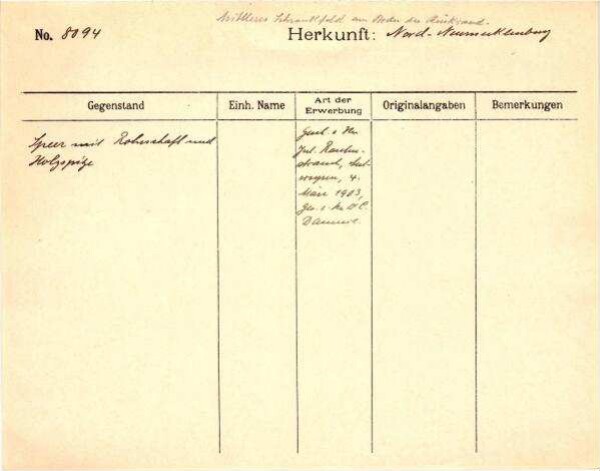 Mittleres Schrankfeld am Boden der Rückwand.
No. 8094 Herkunft: Nord-Neumecklenburg
Gegenstand Einh. Name Art der Erwerbung Originalangaben Bemerkungen
Speer mit Rohrschaft und
Holzspitze
Gesch. v. Hn
Jul.
4.
März 1903,
Ges. v.